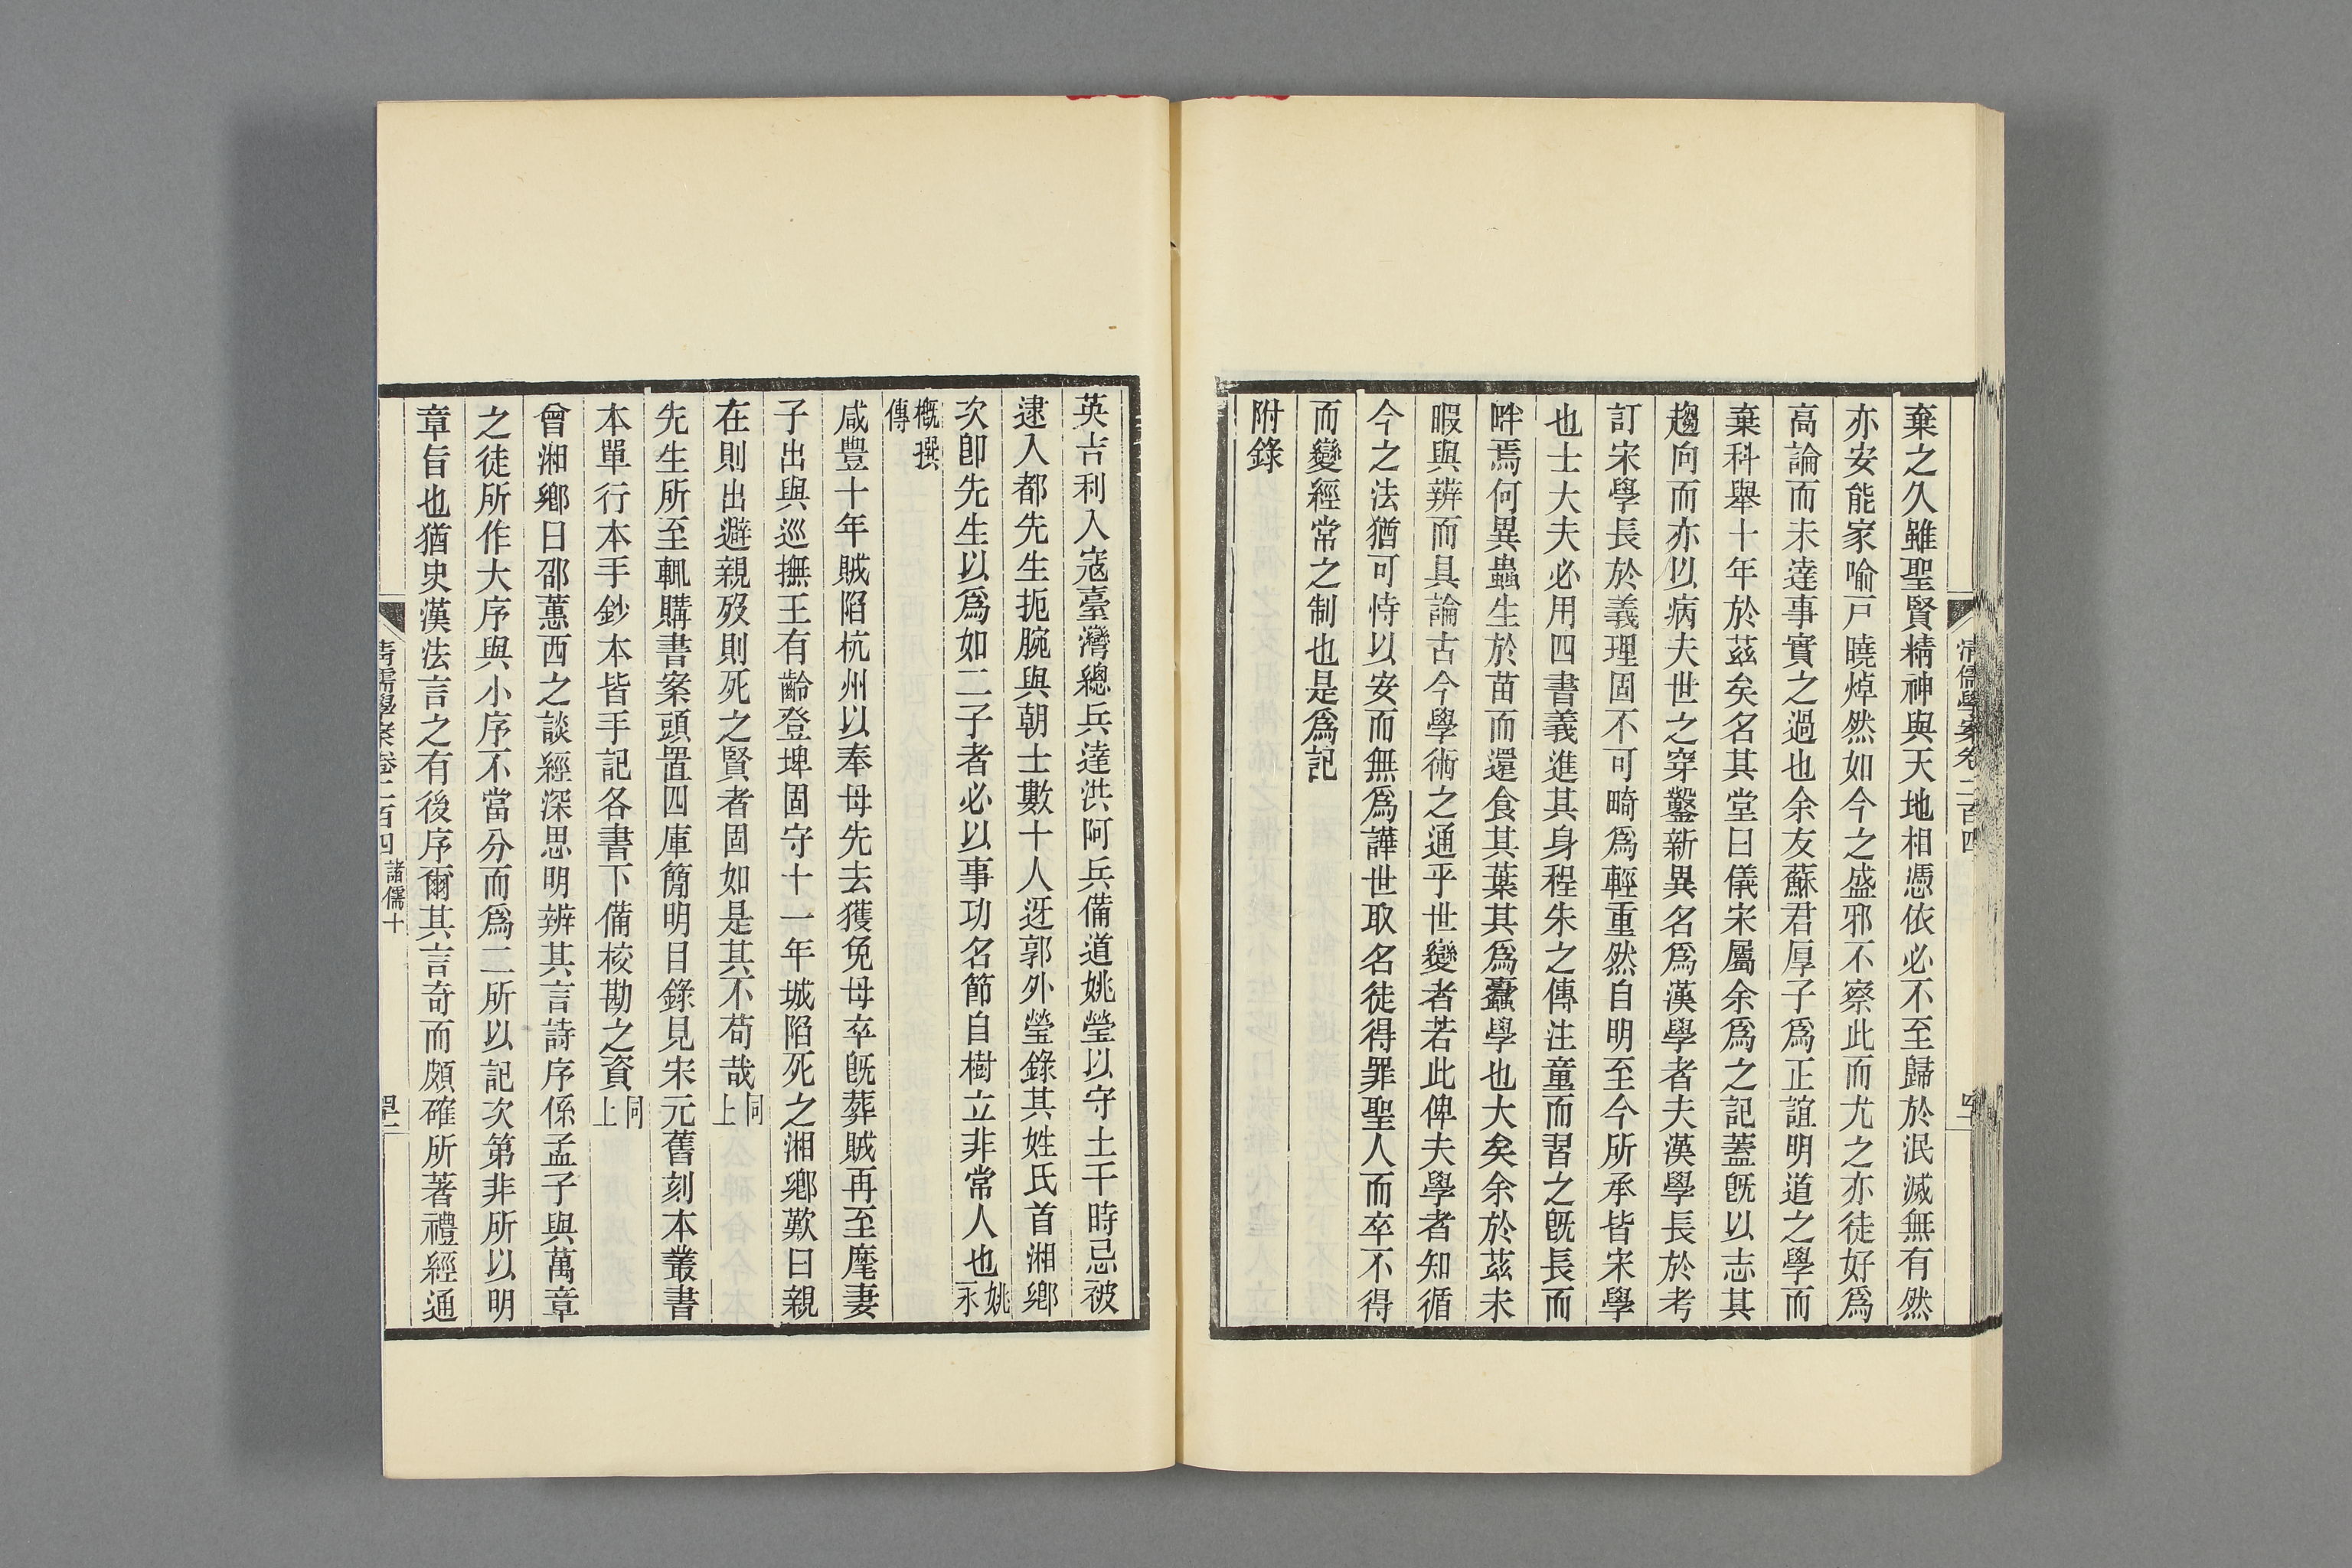 棄之久雖聖賢精神與天地相憑依必不至歸於泯滅無有然
亦安能家喻戸曉焯然如今之盛邪不察此而尤之亦徒好爲
高論而未達事實之過也余友蘇君厚子爲正誼明道之學而
棄科舉十年於茲矣名其堂曰儀宋屬余爲之記蓋旣以志其
趨向而亦以病夫世之穿鑿新異名爲漢學者夫漢學長於考
訂宋學長於義理固不可畸爲輕重然自明至今所承皆宋學
也士大夫必用四書義進其身程朱之傳注童而習之旣長而
畔焉何異蟲生於苗而還食其葉其爲蠹學也大矣余於茲未
暇與辨而具論古今學術之通乎世變者若此俾夫學者知循
今之法猶可恃以安而無爲譁世取名徒得罪聖人而卒不得
而變經常之制也是爲記
附錄
清儒學案卷二百四
英吉利入寇臺灣總兵達洪阿兵備道姚瑩以守土干時忌被
逮入都先生扼腕與朝士數十人迓郭外瑩錄其姓氏首湘鄕
次卽先生以爲如二子者必以事功名節自樹立非常人也姚永
槪撰傳
咸豐十年賊陷杭州以奉母先去獲免母卒旣葬賊再至麾妻
子出與巡撫王有齡登埤固守十一年城陷死之湘鄕歎曰親
在則出避親歿則死之賢者固如是其不苟哉同上
先生所至輒購書案頭置四庫簡明目錄見宋元舊刻本叢書
本單行本手鈔本皆手記各書下備校勘之資同上
曾湘鄕曰邵蕙西之談經深思明辨其言詩序係孟子與萬章
之徒所作大序與小序不當分而爲二所以記次第非所以明
章旨也猶史漢法言之有後序爾其言奇而頗確所著禮經通
清儒學案卷二百四 諸儒十